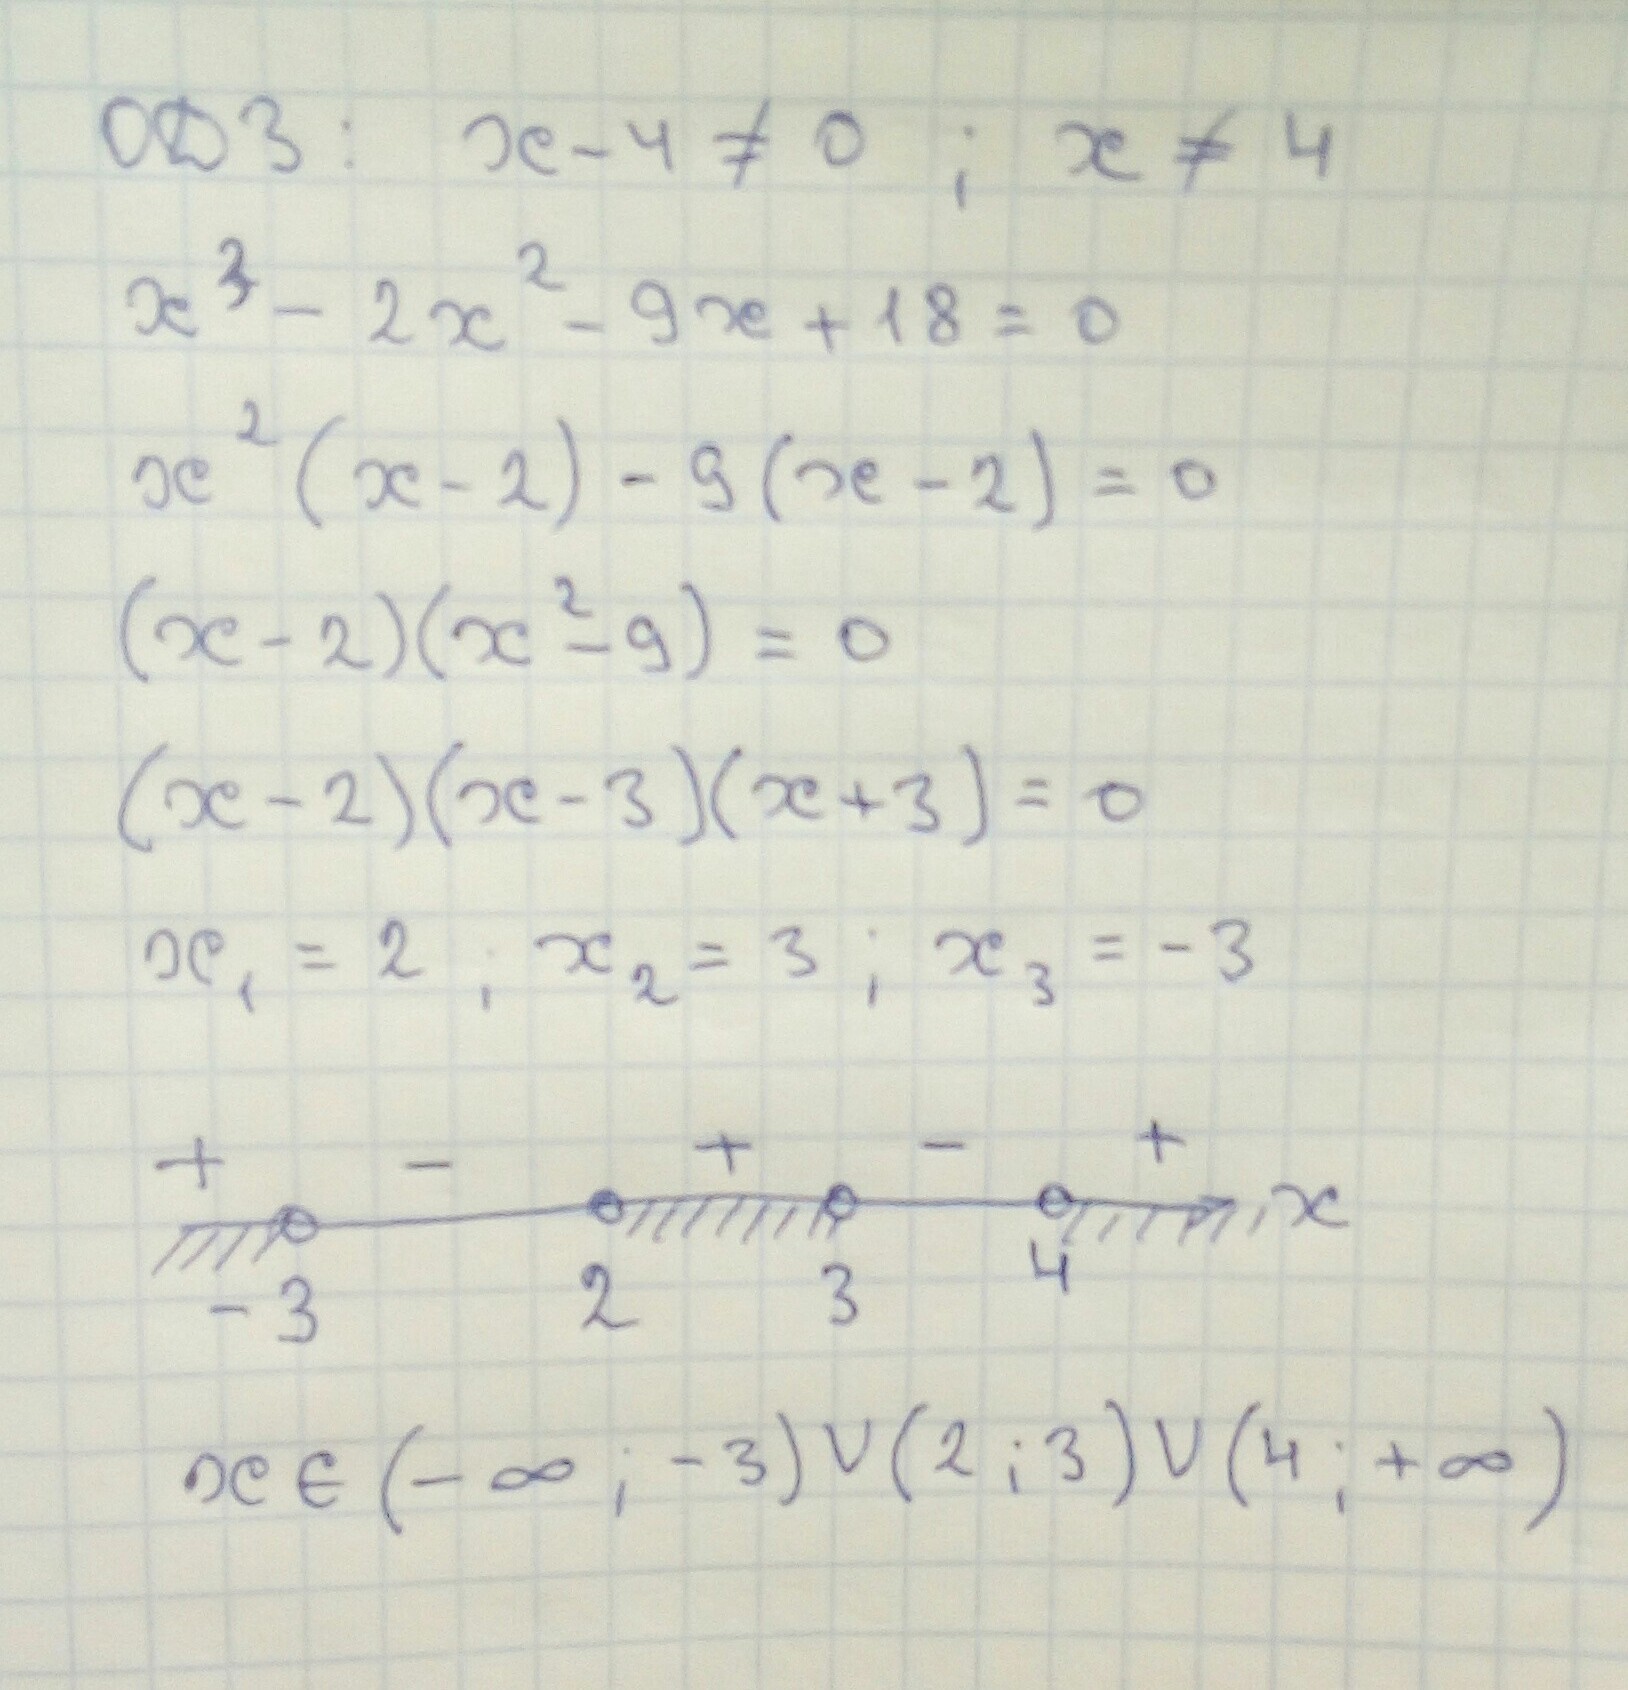 ОДЗ: x-4≠0 ; x≠4
x³-2x²-9x+18=0
x²(x-2)-9(x-2)=0
(x-2)(x²-9)=0
(x-2)(x-3)(x+3)=0
x₁=2 ; x₂=3 ; x₃=-3
+ - + - +
x
-3 2 3 4
x∈(-∞;-3)∪(2;3)∪(4;+∞)